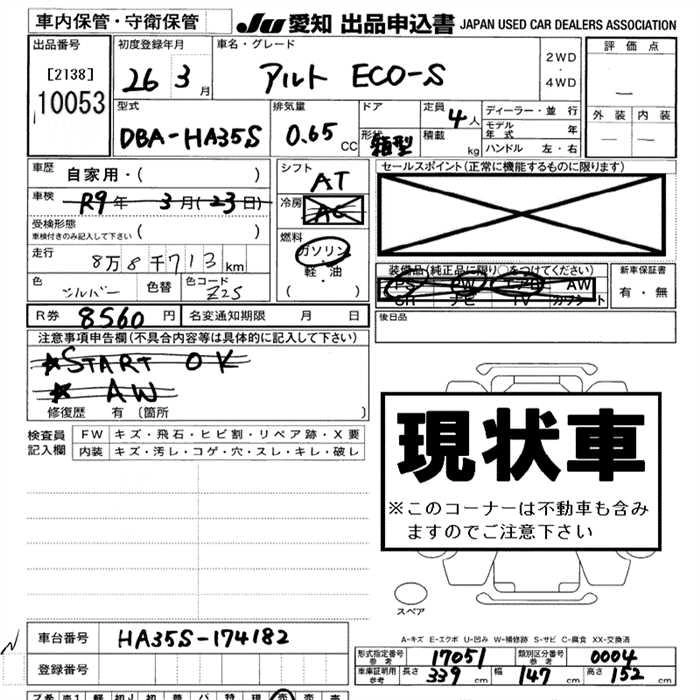 車内保管・守衛保管
JU 愛知 出品申込書 JAPAN USED CAR DEALERS ASSOCIATION
出品番号
[2138]
10053
初度登録年月
26 3 月
車名・グレード
アルト ECO-S
2WD
・
4WD
評価点
外装 内装
型式
DBA-HA35S
排気量
0.65 CC
ドア
形状
箱型
定員
4人
積載
kg
ディーラー・並行
モデル年式 年
ハンドル 左・右
車歴 自家用・( )
車検 R9年 3月(23日)
受検形態
車検付きのみ記入して下さい ( )
走行
8万8千713km
色 シルバー 色替 色コード Z2S
シフト
AT
冷房
AC
燃料
ガソリン
軽・油
( )
セールスポイント(正常に機能するものに限ります)
装備品(純正品に限り○をつけてください)
PS PW エアB AW
SR ナビ TV カワシート
新車保証書
有・無
後日品
R券 8560 円 名変通知期限 月 日
注意事項申告欄(不具合内容等は具体的に記入して下さい)
★START OK
★AW
修復歴 有 (箇所 )
検査員
記入欄
FW キズ・飛石・ヒビ割・リペア跡・X要
内装 キズ・汚レ・コゲ・穴・スレ・キレ・破レ
現状車
※このコーナーは不動車も含み
ますのでご注意下さい
スペア
A-キズ E-エクボ U-凹み W-補修跡 S-サビ C-腐食 XX-交換済
車台番号 HA35S-174182
登録番号
形式指定番号
参考
17051
類別区分番号
参考
0004
車庫証明用
参考
長さ 339 cm 幅 147 cm 高さ 152 cm